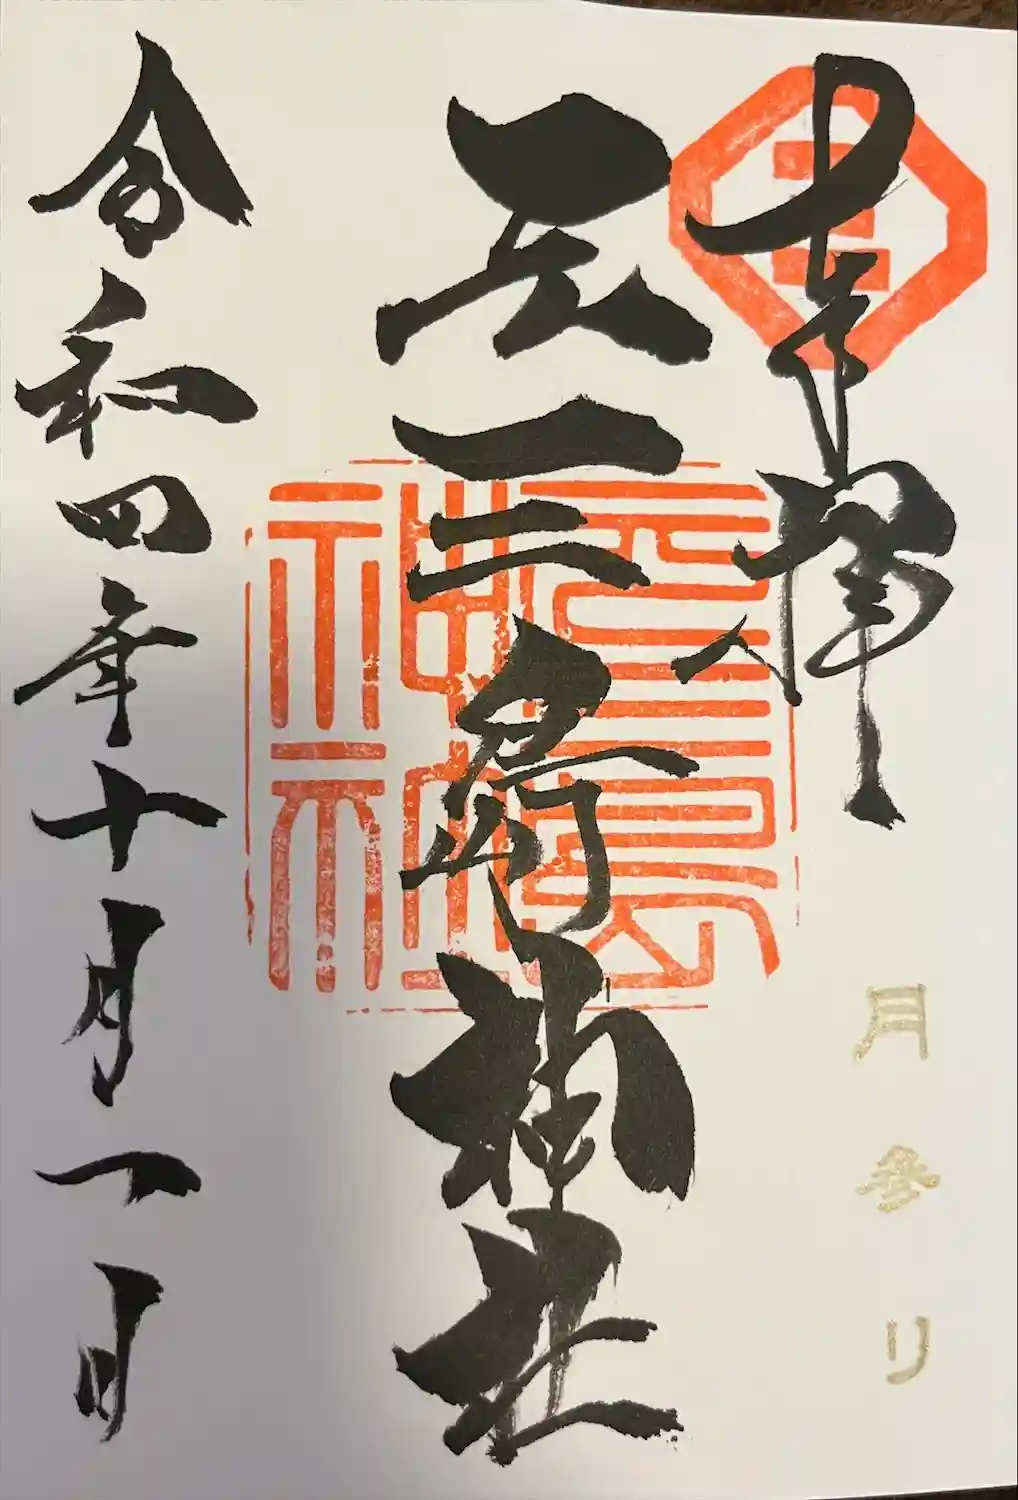 奉拝
月参り
元三島神社
元三島神社
令和四年十月一日